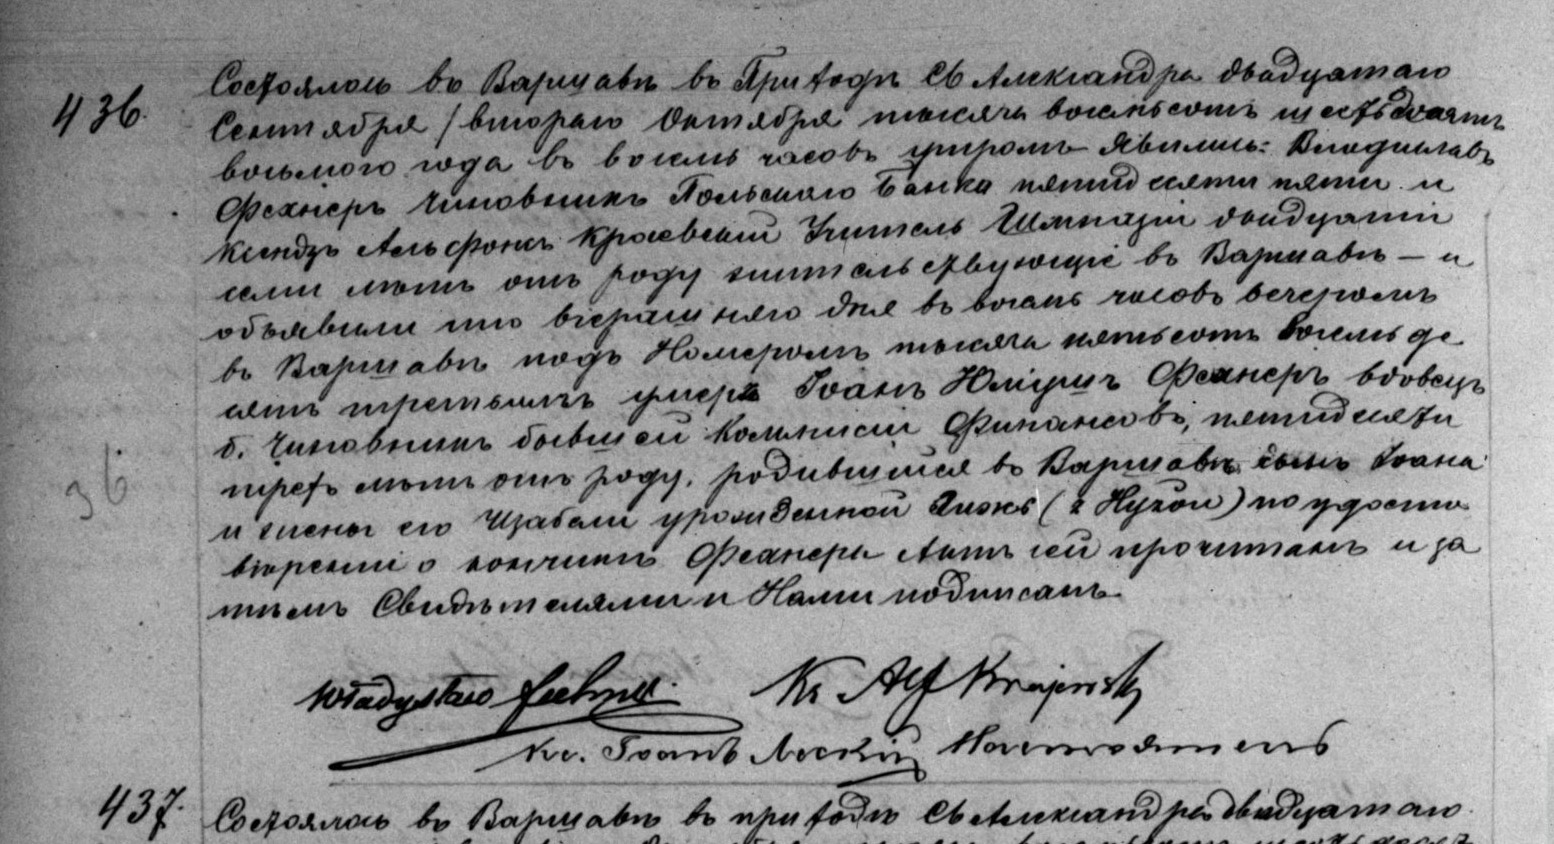 436.
Состоялось въ Варшавѣ въ Приходѣ Св Александра двадцатаго
Сентября / втораго Октября тысяча восемьсотъ шестьдесятъ
восьмого года въ восемь часовъ утромъ Явились: Владиславъ
Фехнеръ Чиновникъ Польскаго Банка пятидесяти пяти и
Ксендзъ Альфонсъ Краевскій Учитель Гимназіи двадцати
семи лѣтъ отъ роду жительствующіе въ Варшавѣ – и
объявили что вчерашняго дня въ восемь часовъ вечеромъ
въ Варшавѣ подъ Номеромъ тысяча пятьсотъ восемьде
сятъ третьимъ умеръ Іоанъ Фехнеръ вдовецъ
б. Чиновникъ бывшей Коммисіи Финансовъ, пятидесяти
трехъ лѣтъ отъ роду, родившійся въ Варшавѣ сынъ Іоана
и жены его Изабели урожденной по удосто
вѣреніи о кончинѣ Фехнера Актъ сей прочитанъ и за
тѣмъ Свидѣтелями и Нами подписанъ.
Władysław Fechner Ks Alf Krajewski
Кс. Іоанъ Настоятель
36
437.
Состоялось въ Варшавѣ въ приходѣ Св Александра двадцатаго